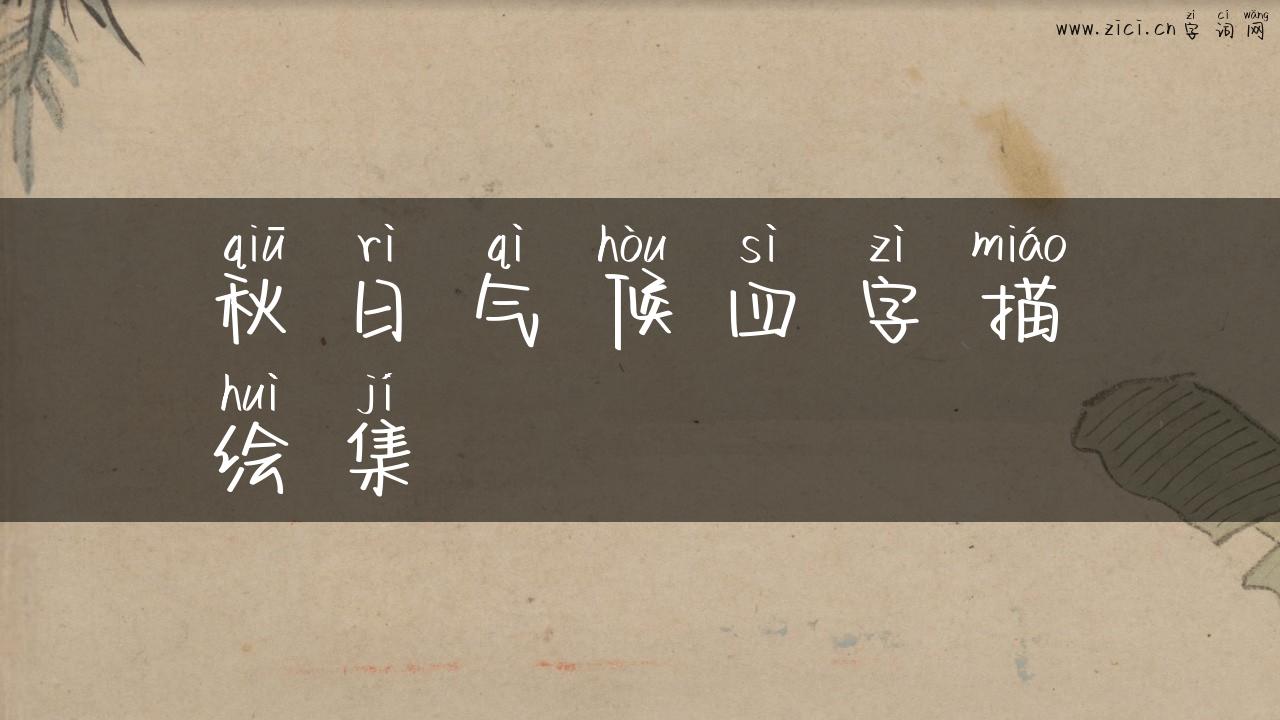 zì cí wǎng
www.zici.cn 字词网
qiū rì qì hòu sì zì miáo
秋日气候四字描
huì jí
绘集